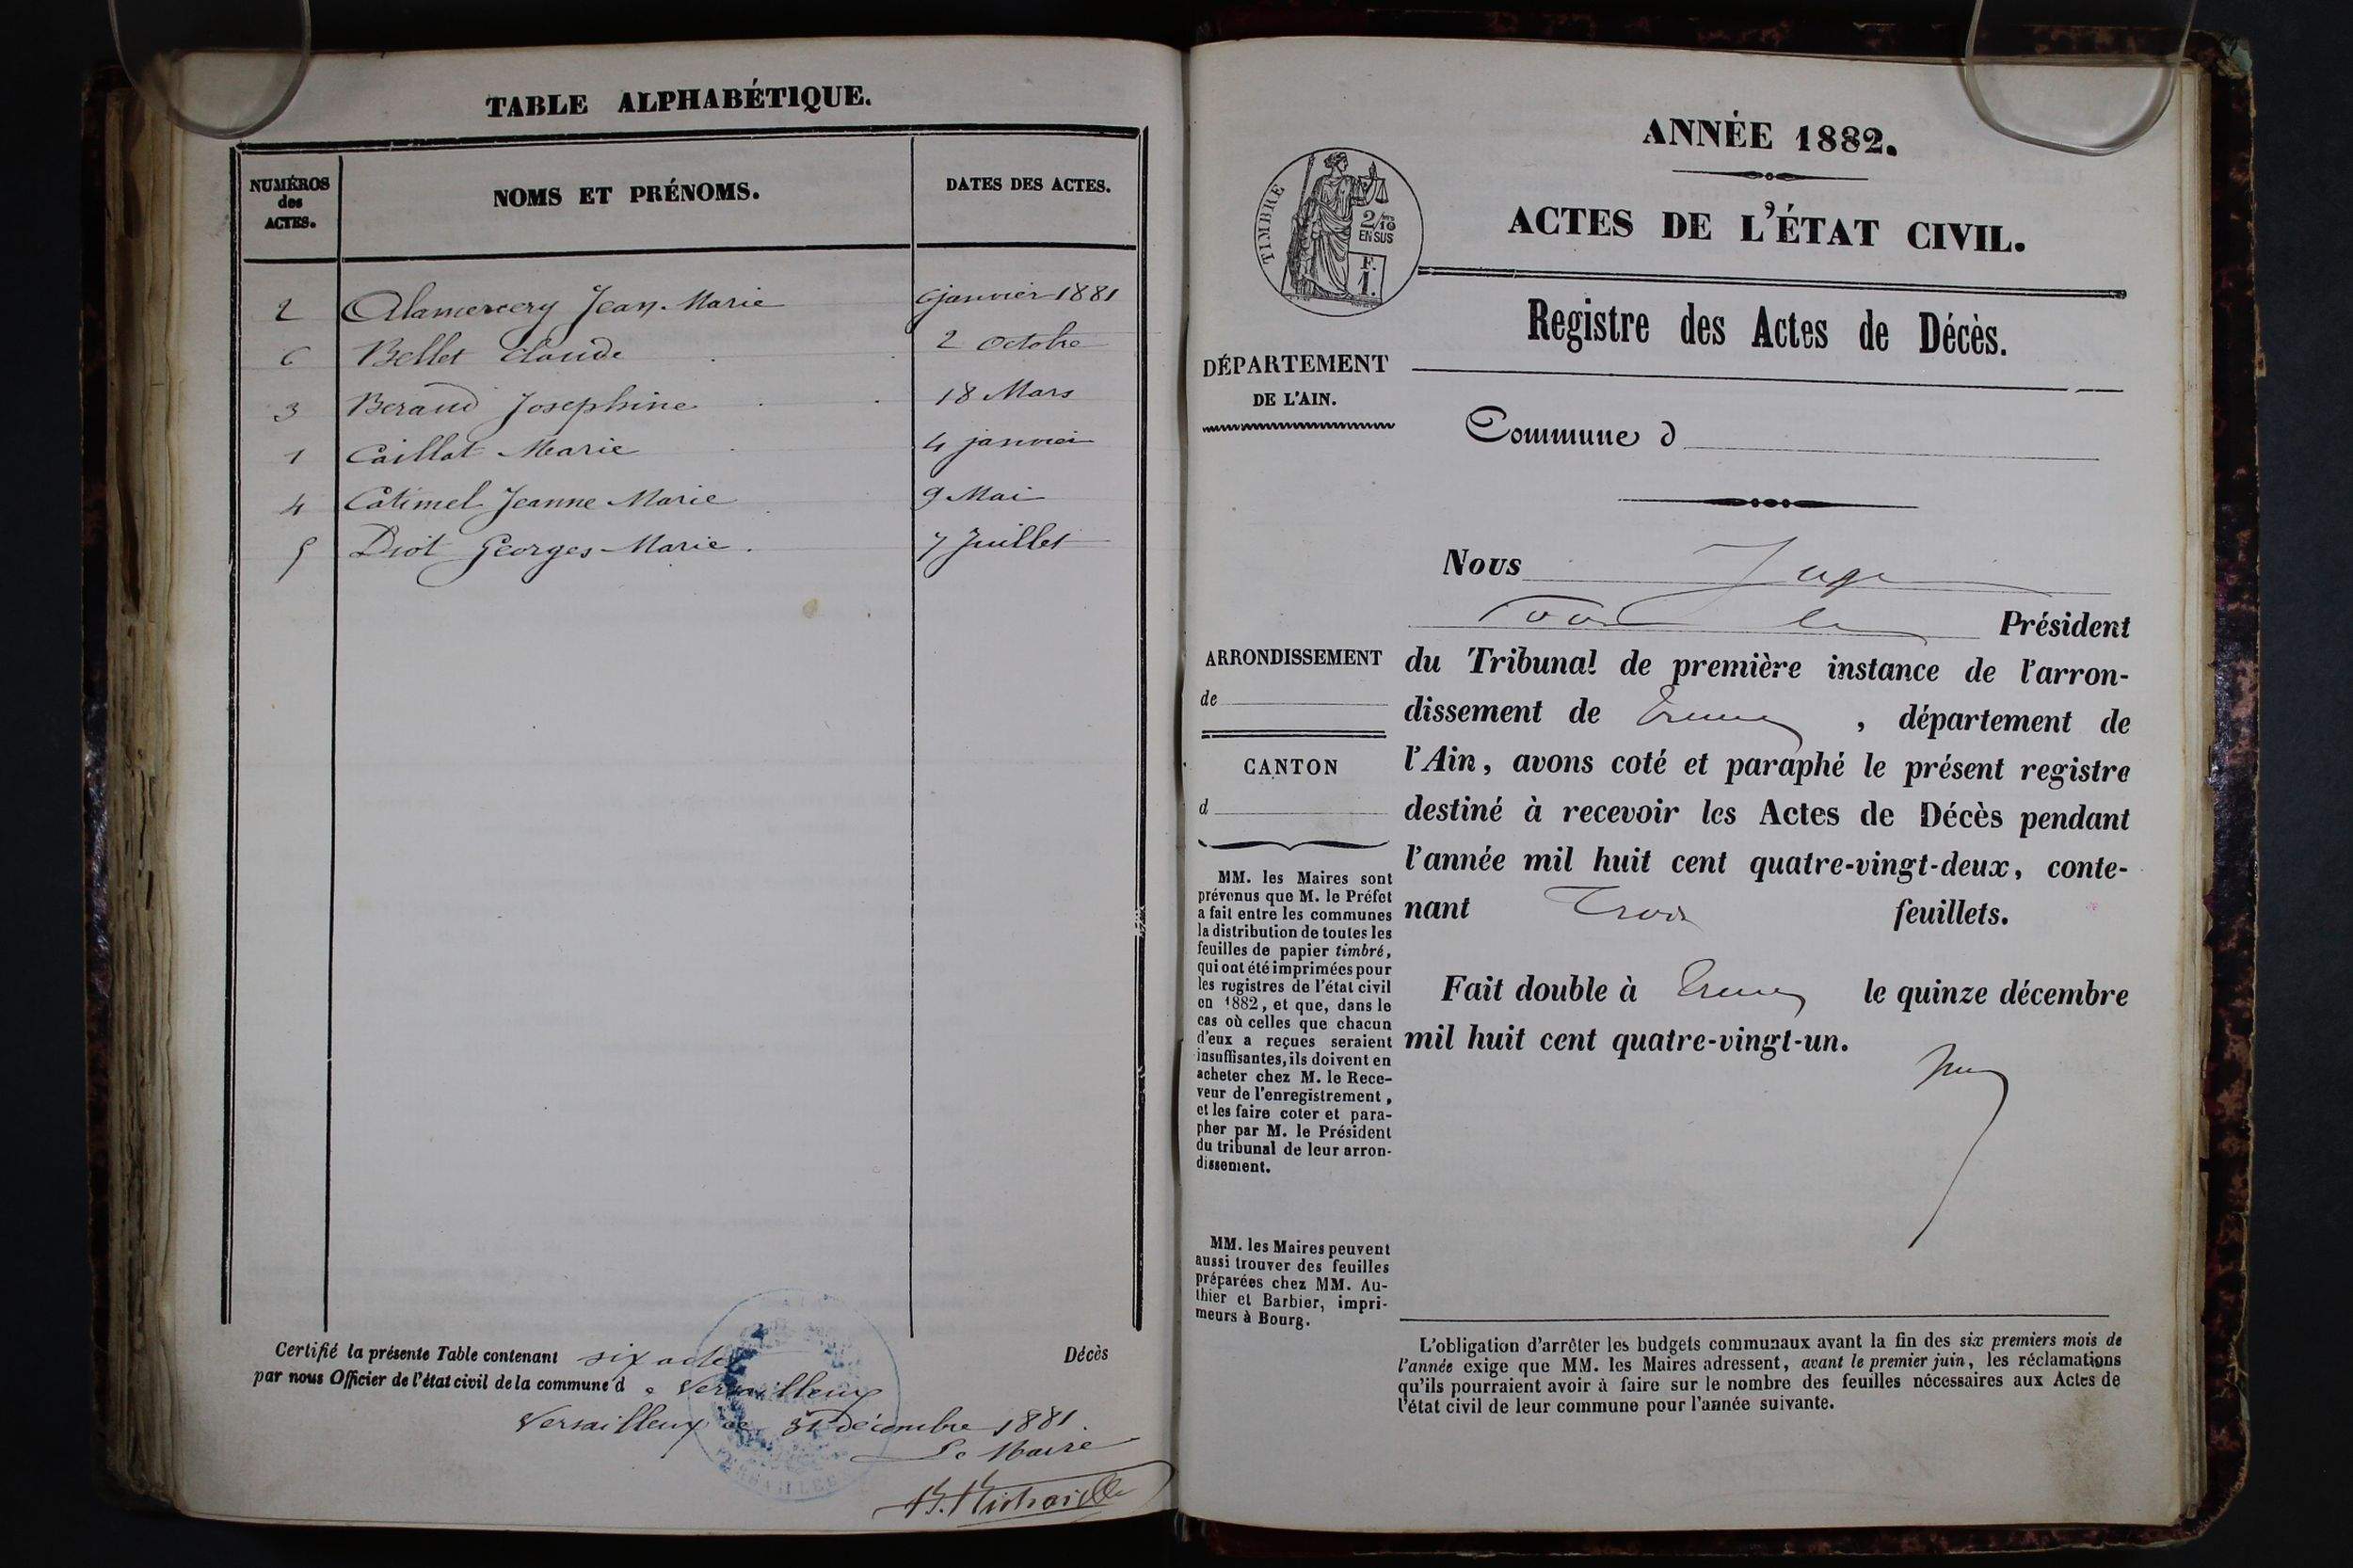 TABLE ALPHABÉTIQUE.
NUMÉROS
des
ACTES.
NOMS ET PRÉNOMS.
DATES DES ACTES.
2 Alamercery Jean Marie 6 janvier 1881
6 Bellet Claude 2 Octobre
3 Beraud Josephine 18 Mars
1 Caillat Marie 4 janvier
4 Catimel Jeanne Marie 9 Mai
5 Diot Georges Marie. 7 Juillet
Certifié la présente Table contenant six actes Décès
par nous Officier de l'état civil de la commune d e Versailleux
Versailleux ce 31 décembre 1881.
Le Maire
ANNÉE 1882.
ACTES DE L'ÉTAT CIVIL.
TIMBRE
2/10
EN SUS
F.
1.
Registre des Actes de Décès.
DÉPARTEMENT
DE L'AIN.
Commune d
Nous Juge
pour le Président
ARRONDISSEMENT
de
CANTON
d
du Tribunal de première instance de l'arron-
dissement de Trévoux, département de
l'Ain, avons coté et paraphé le présent registre
destiné à recevoir les Actes de Décès pendant
l'année mil huit cent quatre-vingt-deux, conte-
nant Trois feuillets.
Fait double à Trévoux le quinze décembre
mil huit cent quatre-vingt-un.
MM. les Maires sont
prévenus que M. le Préfet
a fait entre les communes
la distribution de toutes les
feuilles de papier timbré,
qui ont été imprimées pour
les registres de l'état civil
en 1882, et que, dans le
cas où celles que chacun
d'eux a reçues seraient
insuffisantes, ils doivent en
acheter chez M. le Rece-
veur de l'enregistrement,
et les faire coter et para-
pher par M. le Président
du tribunal de leur arron-
dissement.
MM. les Maires peuvent
aussi trouver des feuilles
préparées chez MM. Au-
thier et Barbier, impri-
meurs à Bourg.
L'obligation d'arrêter les budgets communaux avant la fin des six premiers mois de
l'année exige que MM. les Maires adressent, avant le premier juin, les réclamations
qu'ils pourraient avoir à faire sur le nombre des feuilles nécessaires aux Actes de
l'état civil de leur commune pour l'année suivante.